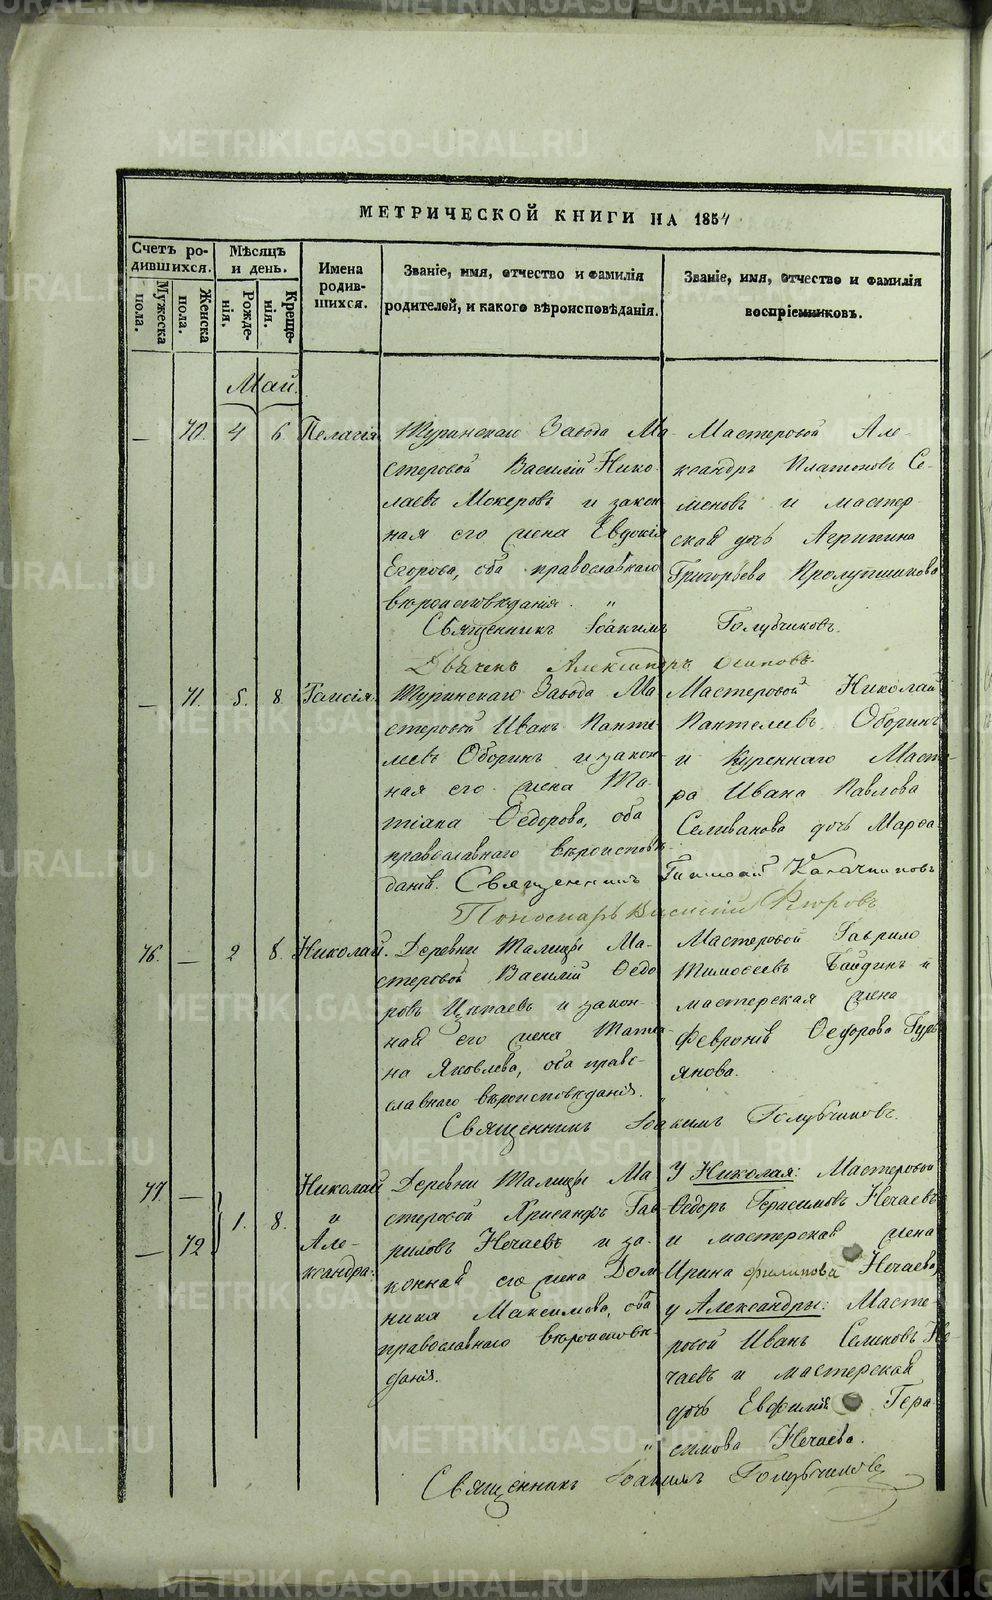 МЕТРИЧЕСКОЙ КНИГИ НА 1854
Счетъ ро-
дившихся.
Мужеска
пола.
Женска
пола.
Мѣсяцъ
и день.
Рожде-
нія.
Креще-
нія.
Имена
родив-
шихся.
Званіе, имя, отчество и фамилія
родителей, и какого вѣроисповѣданія.
Званіе, имя, отчество и фамилія
воспріемниковъ.
Май.
— 70. 4 6 Пелагія
Туринскаго Завода Ма-
стеровой Василій Нико-
лаевъ Мокеровъ и закон
ная его жена Евдокія
Егорова, оба православнаго
вѣроисповѣданія.
Мастеровой Але-
ксандръ Платоновъ Се-
меновъ и мастер
ская дочь Агрипина
Григорьева Пролупшикова
Священникъ Іоакимъ Голубчиковъ.
Дьячекъ Александръ Осиповъ.
— 71. 5. 8. Таисія.
Туринскаго Завода Ма
стеровой Иванъ Панте
леевъ Оборинъ и закон
ная его жена Та-
тіана Ѳедорова, оба
православнаго вѣроисповѣ-
данія.
Мастеровой Николай
Пантелеевъ Оборинъ
и Куреннаго Масте-
ра Ивана Павлова
Селиванова дочь Марѳа.
Священникъ
Пономарь Василій
76. — 2 8. Николай.
Деревни Талицы Ма-
стеровой Василій Ѳедо
ровъ и закон-
ная его жена Татiа
на Яковлева, оба право-
славнаго вѣроисповѣданія.
Мастеровой Гаврило
Тимоѳеевъ Байдинъ и
мастерская жена
Феврoнія Ѳедорова Гурь
янова.
Священникъ Іоакимъ Голубчиковъ.
77 — 
— 72
1. 8.
Николай
и
Але-
ксандра:
Деревни Талицы Ма
стеровой Хрисанфъ Гав-
риловъ Нечаевъ и за-
конная его жена Дом
ника Максимова, оба
православнаго вѣроисповѣ-
данія.
У Николая: Мастеровой
Ѳедоръ Герасимовъ Нечаевъ
и мастерская жена
Ирина Филипова Нечаева,
у Александры: Масте-
ровой Иванъ Семеновъ Не-
чаевъ и мастерская
дочь Евфимія Гера-
симова Нечаева.
Священникъ Іоакимъ Голубчиковъ
METRIKI.GASO-URAL.RU